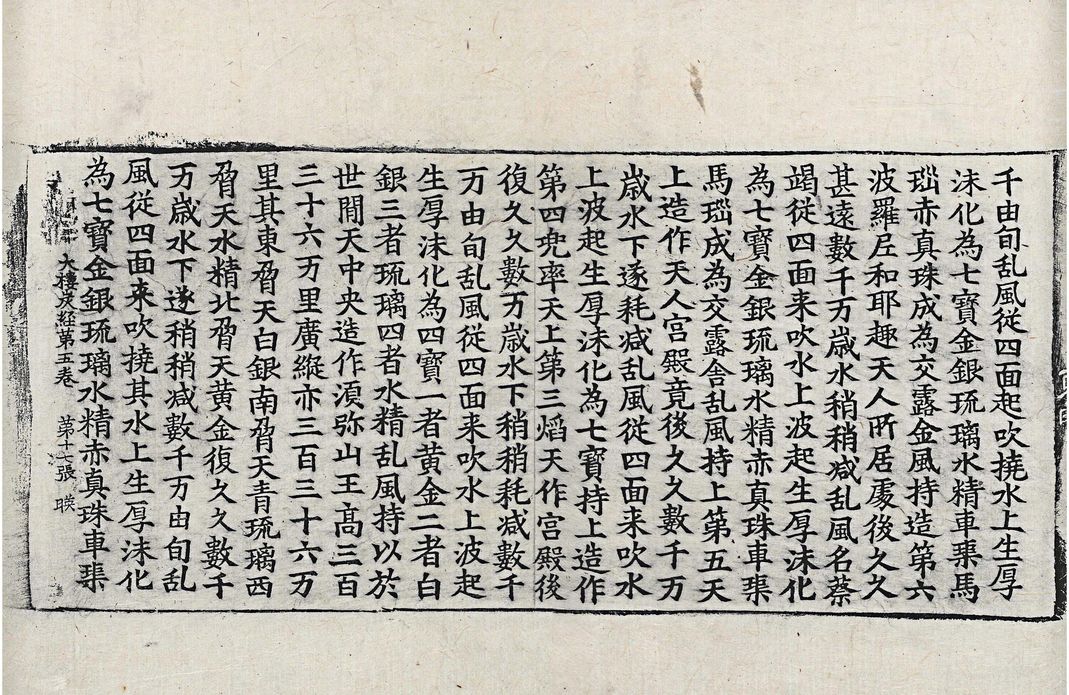 千由旬乱風從四面起吹撓水上生厚
沫化為七寶金銀琉璃水精車𤦲馬
瑙赤真珠成為交露金風持造第六
波羅尼和耶趣天人所居處後久久
甚遠數千万歲水稍稍減乱風名蔡
竭從四面来吹水上波起生厚沫化
為七寶金銀琉璃水精赤真珠車𤦲
馬瑙成為交露舍乱風持上第五天
上造作天人宮殿竟後久久數千万
歲水下遂耗減乱風從四面来吹水
上波起生厚沫化為七寶持上造作
第四兜率天上第三焰天作宮殿後
復久久數万歲水下稍稍耗減數千
万由旬乱風從四面来吹水上波起
生厚沫化為四寶一者黄金二者白
銀三者琉璃四者水精乱風持以於
世間天中央造作湏弥山王高三百
三十六万里廣縱亦三百三十六万
里其東脅天白銀南脅天青琉璃西
脅天水精北脅天黄金復久久數千
万歲水下遂稍稍減數千万由旬乱
風從四面来吹撓其水上生厚沫化
為七寶金銀琉璃水精赤真珠車𤦲
大樓炭経第五卷 第十七張 映